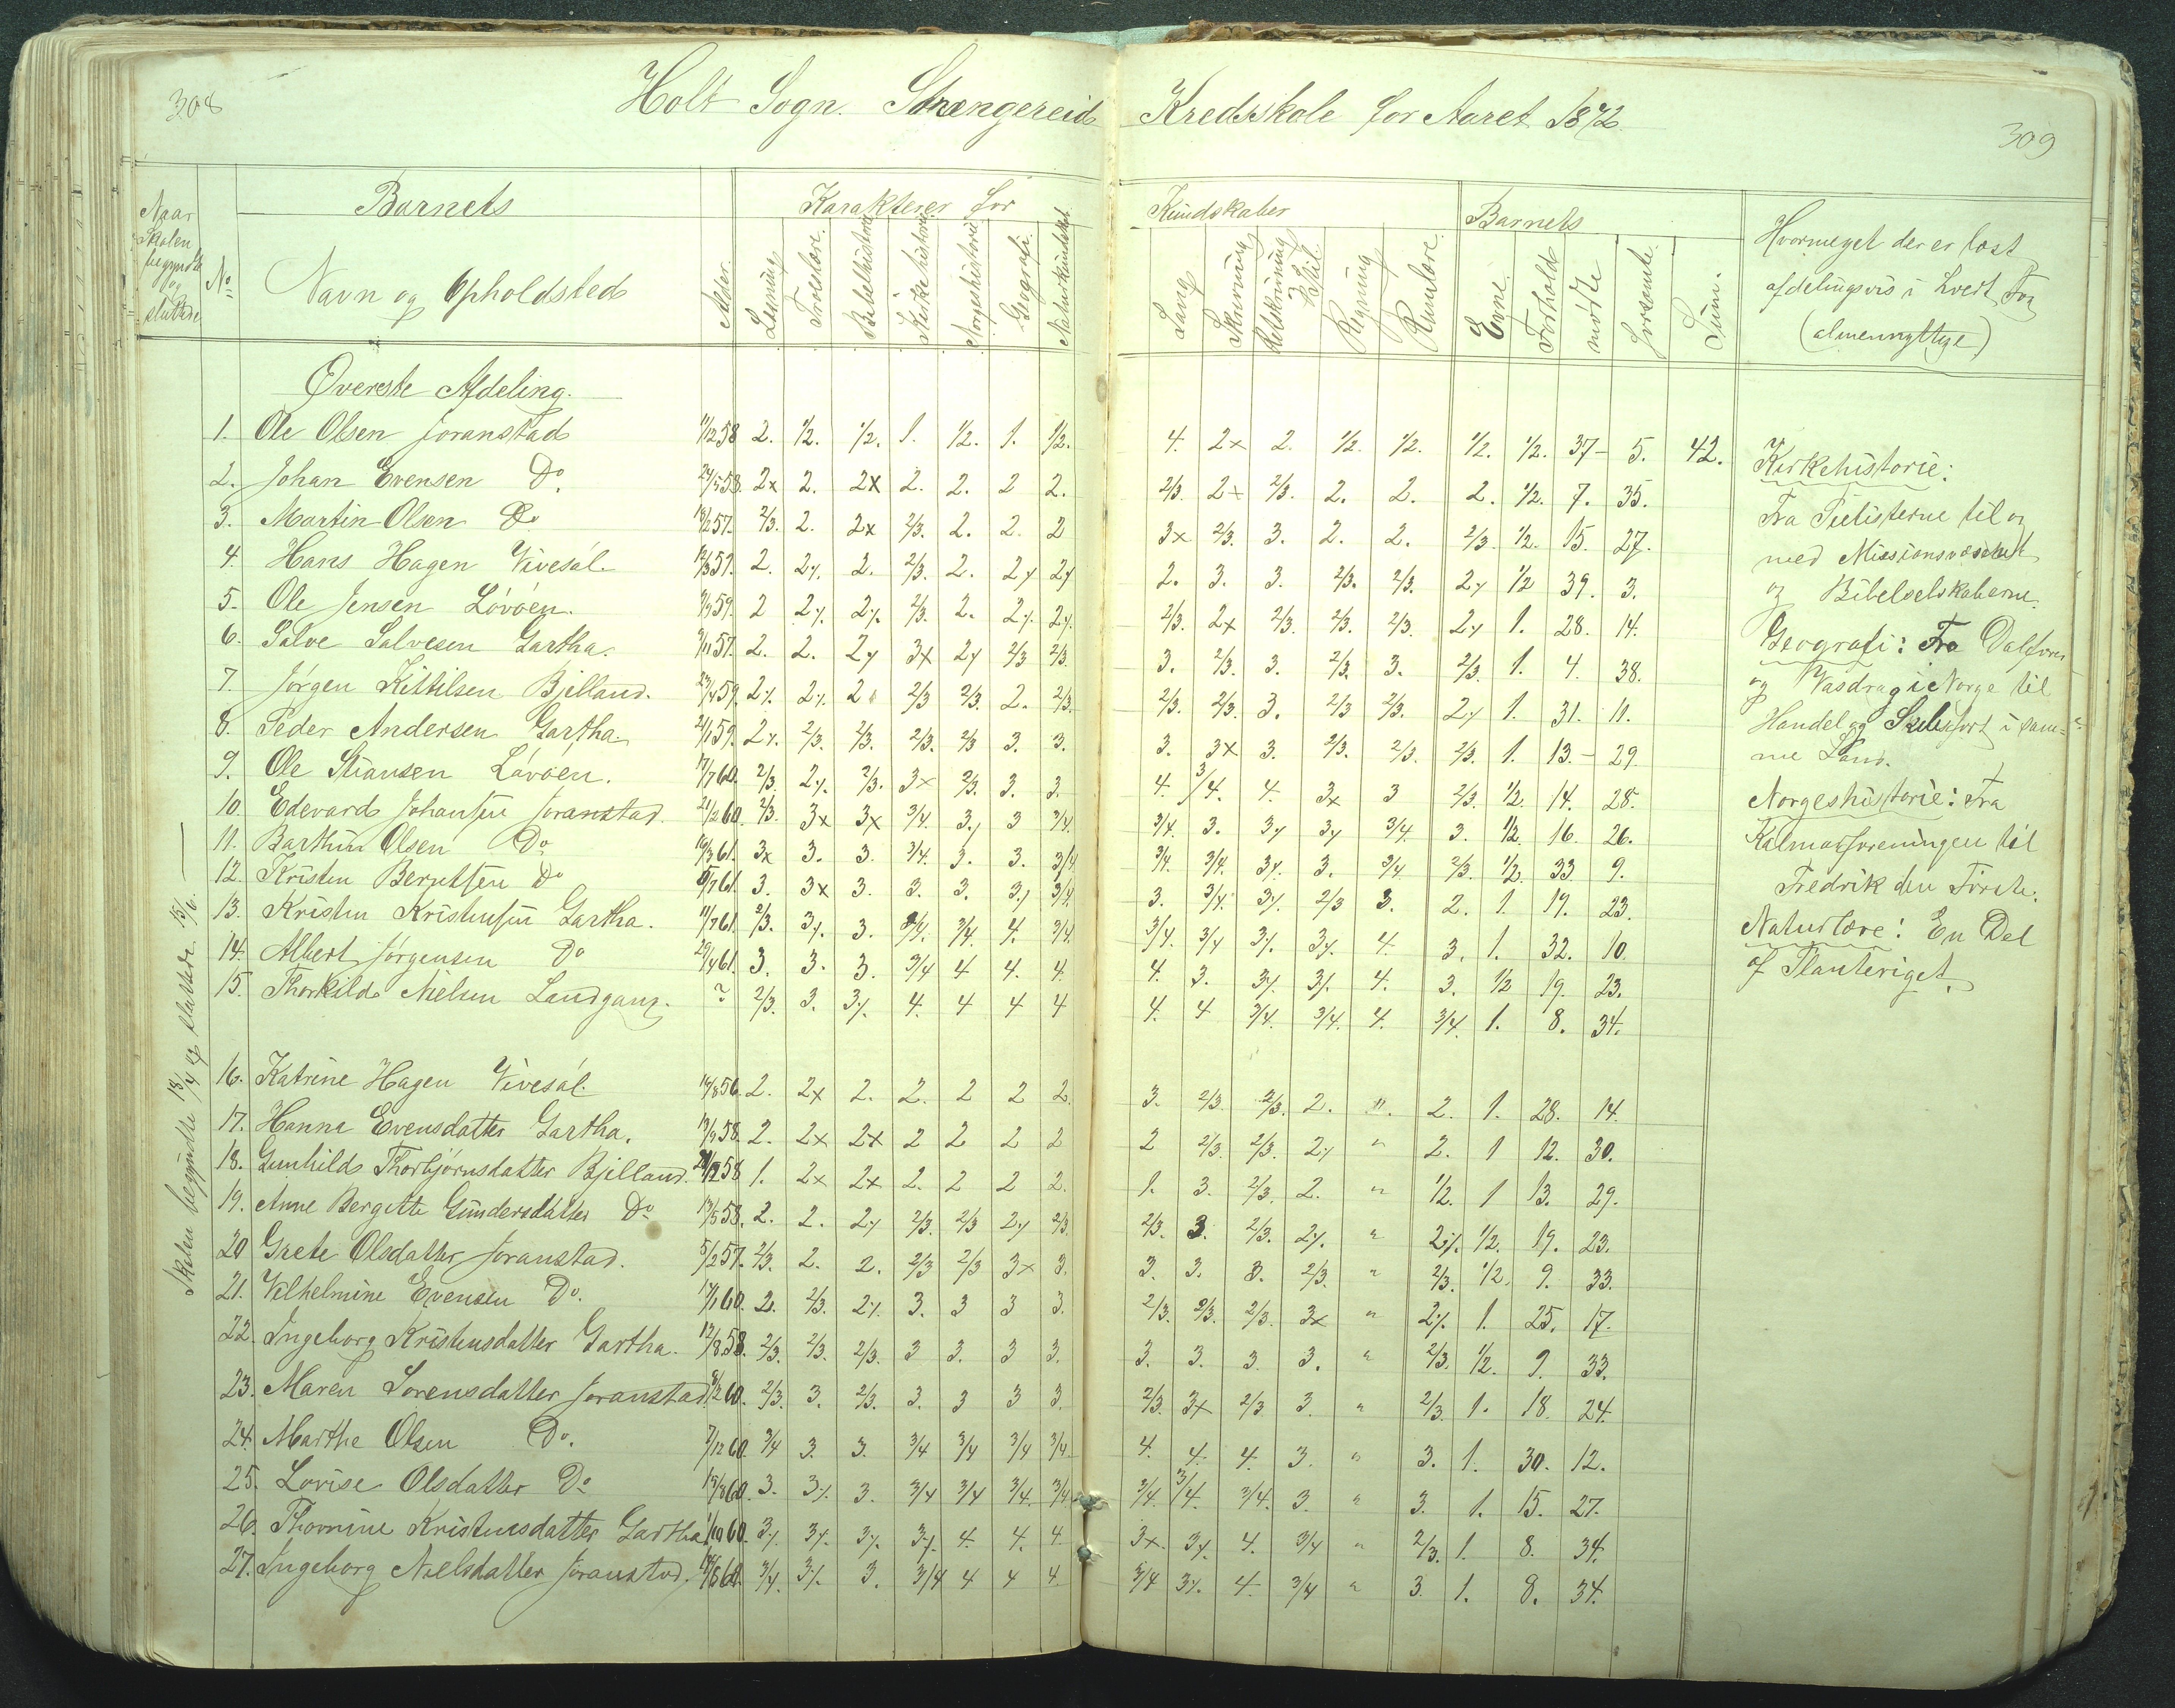 308
Holt Sogn. Strængereid Kredsskole for Aaret 1872
309
Naar Skolen begyndte og sluttede
No
Barnets
Navn og Opholdsted
Alder.
Karakterer for
Læsning
Troeslære.
Bibelhistorie
Kirkehistorie.
Norgeshistorie
Geografi.
Naturkundskab
Kundskaber
Sang
Skrivning
Retskrivning & Stil
Regning
Rumlære.
Barnets
Evne.
Forhold
mødte
forsømte.
Sum.
Hvormeget der er læst
afdelingsvis i hvert Fag
(almennyttige)
Øverste Afdeling.
1. Ole Olsen Joranstad 11/2 58 2. 1/2. 1/2. 1. 1/2. 1. 1/2. 4. 2x 2. 1/2. 1/2. 1/2. 1/2. 37 5. 42.
2. Johan Evensen Do. 24/5 58. 2x 2. 2x 2. 2. 2 2. 2/3. 2x 2/3. 2. 2. 2. 1/2. 7. 35.
3. Martin Olsen Do 18/2 57. 2/3. 2. 2x 2/3. 2. 2. 2 3x 2/3. 3. 2. 2. 2/3. 1/2. 15. 27.
4. Hans Hagen Vivesøl. 12/3 57. 2. 2% 2. 2/3. 2. 2% 2% 2. 3. 3. 2/3. 2/3. 2% 1/2 39. 3.
5. Ole Jensen Løvøen. 9/9 59. 2 2% 2% 2/3. 2. 2% 2% 2/3. 2x 2/3. 2/3. 2/3. 2% 1. 28. 14.
6. Salve Salvesen Gartha. 9/11 57. 2. 2. 2% 3x 2% 2/3 2/3. 3. 2/3. 3. 2/3. 3. 2/3. 1. 4. 38.
7. Jørgen Kittilsen Bjelland. 23/4 59. 2% 2% 2 2/3 2/3. 2. 2/3. 2/3. 2/3. 3. 2/3 2/3. 2% 1. 31. 11.
8. Peder Andersen Gartha. 21/1 59. 2% 2/3. 2/3. 2/3. 2/3 3. 3. 3. 3x 3. 2/3. 2/3. 2/3. 1. 13. 29
9. Ole Stiansen Løvøen. 17/7 60. 2/3. 2% 2/3. 3x 2/3. 3. 3. 4. 3/4. 4. 3x 3 2/3. 1/2. 14. 28.
10. Edevard Johansen Joranstad. 21/2 60. 2/3. 3x 3x 3/4. 3% 3 3/4. 3/4. 3. 3% 3% 3/4. 3. 1/2. 16. 26.
11. Barthin Olsen Do 16/3 61. 3x 3. 3. 3/4. 3. 3. 3/4 3/4. 3/4. 3% 3. 3/4 2/3. 1/2. 33 9.
12. Kristen Berntsen Do 8/7 61. 3. 3x 3. 3. 3. 3% 3/4. 3. 3/4. 3% 2/3 3. 2. 1. 19. 23.
13. Kristen Kristensen Gartha. 11/7 61. 2/3. 3% 3. 3/4. 3/4. 4. 3/4. 3/4. 3/4 3% 3% 4. 3. 1. 32. 10.
14. Albert Jørgensen Do 29/4 61. 3. 3. 3. 3/4 4 4. 4. 4. 3. 3% 3% 4. 3. 1/2 19. 23.
15. Thorkild Nielsen Landgang. ? 2/3. 3. 3% 4. 4 4 4 4. 4 3/4. 3/4. 4. 3/4. 1. 8. 34.
16. Katrine Hagen Vivesøl 14/8 56. 2. 2x 2. 2. 2 2 2. 3. 2/3. 2/3. 2. " 2. 1. 28. 14.
17. Hanna Evensdatter Gartha. 19/9 58. 2. 2x 2x 2 2 2 2 2 2/3. 2/3. 2% " 2. 1 12. 30.
18. Gunhild Thorbjørnsdatter Bjelland. 58 1. 2x 2x 2. 2 2 2. 1. 3. 2/3. 2. " 1/2. 1 13. 29.
19. Anne Bergitte Gundersdatter Do 13/5 58. 2. 2. 2% 2/3. 2/3 2% 2/3 2/3. 3. 2/3. 2% " 2% 1/2. 19. 23.
20 Grete Olsdatter Joranstad. 5/2 57. 2/3. 2. 2. 2/3 2/3 3x 3. 3. 3. 3. 2/3. " 2/3. 1/2. 9. 33.
21. Vilhelmine Evensen Do. 17/1 60. 2. 2/3. 2% 3. 3 3 3. 2/3. 2/3. 2/3. 3x " 2% 1. 25. 17.
22. Ingeborg Kristensdatter Gartha. 12/8 58. 2/3. 2/3. 2/3. 3 3. 3 3. 3. 3. 3. 3. " 2/3. 1/2. 9. 33.
23. Maren Sørensdatter Joranstad. 8/2 60. 2/3. 3. 2/3. 3. 3 3 3. 2/3. 3x 2/3 3. " 2/3. 1. 18. 24.
24. Marthe Olsen Do. 7/12 60. 3/4 3. 3. 3/4 3/4 3/4 3/4 4. 4. 4. 3. " 3. 1. 30. 12.
25. Lovise Olsdatter Do 15/8 60. 3. 3% 3. 3/4 3/4 3/4. 3/4. 3/4. 3/4. 3/4. 3. " 3. 1. 15. 27.
26. Thomine Kristensdatter Gartha 1/10 60. 3% 3% 3% 3% 4. 4. 4. 3x. 3% 4. 3/4 " 2/3. 1. 8. 34.
27. Ingeborg Nielsdatter Joranstad. 60. 3/4. 3% 3. 3/4 4 4 4. 3/4 3% 4. 3/4 " 3. 1. 8. 34.
Skolen begyndte 18/4 og sluttede 15/6.
Kirkehistorie:
Fra Pietisterne til og
med Missionsvæsenet
og Bibelselskaberne.
Geografi: Fra Dalføre
og Vasdrag i Norge til
Handel og Skibsfart i sam-
me Land.
Norgeshistorie: Fra
Kalmarforeningen til
Fredrik den Første.
Naturlære: En Del
af Planteriget.